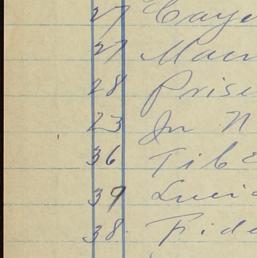 27 Caye
27 Mau
28 Prise
23 In N
36 Tibe
39 Lucia
38 Fide